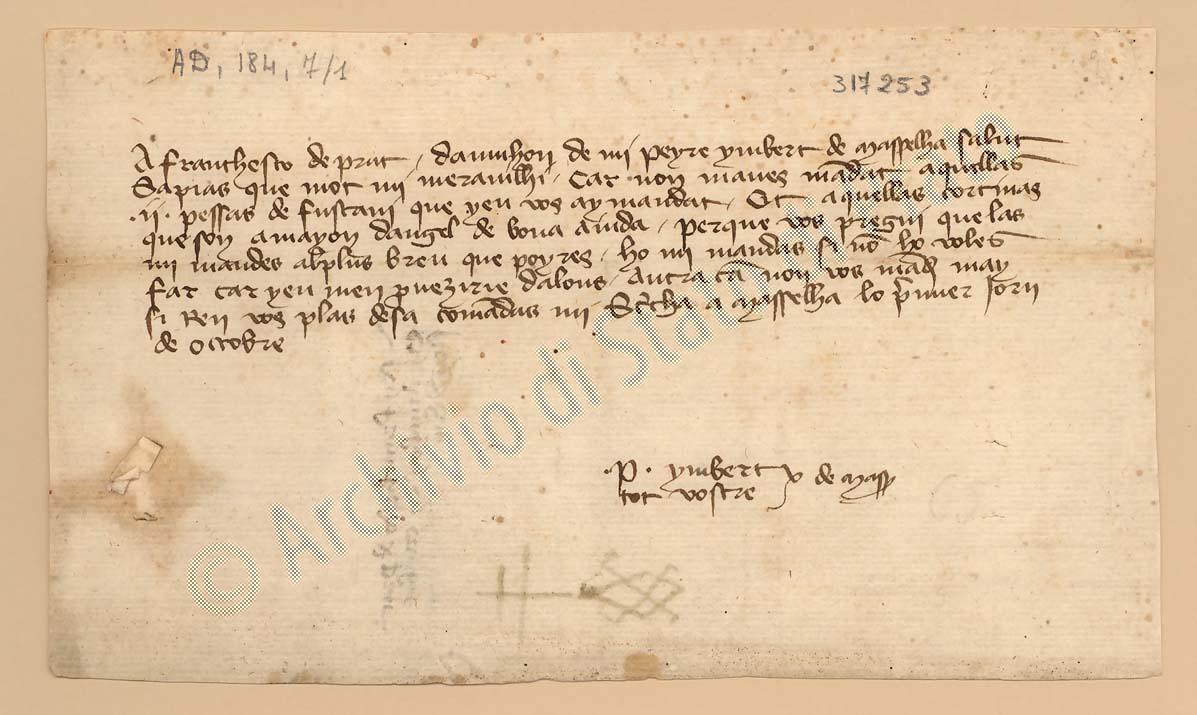 AD, 184, 7/1
317253
A franthesco de prat, davinhon de mi peyre ymbert de masselha salut
Sapias que mot mi meravilhi. Car non maves mādat aquellas
.ii. pessas de fustani que yeu vos ay mandat. Et aquellas cortinas
que son a mayon dangel de bona aiuda. perque vos pregui que las
mi mandes al plus breu que poyres. ho mi mandas si nō ho voles
far car yeu men provezirie dalous. Autra cā non vos mād may
si ren vos plas de sa comādas mi. Sc̄cha a masselha lo p̄mier jorn
de octobre
.P. ymbert de mass
tot vostre
© Archivio di Stato